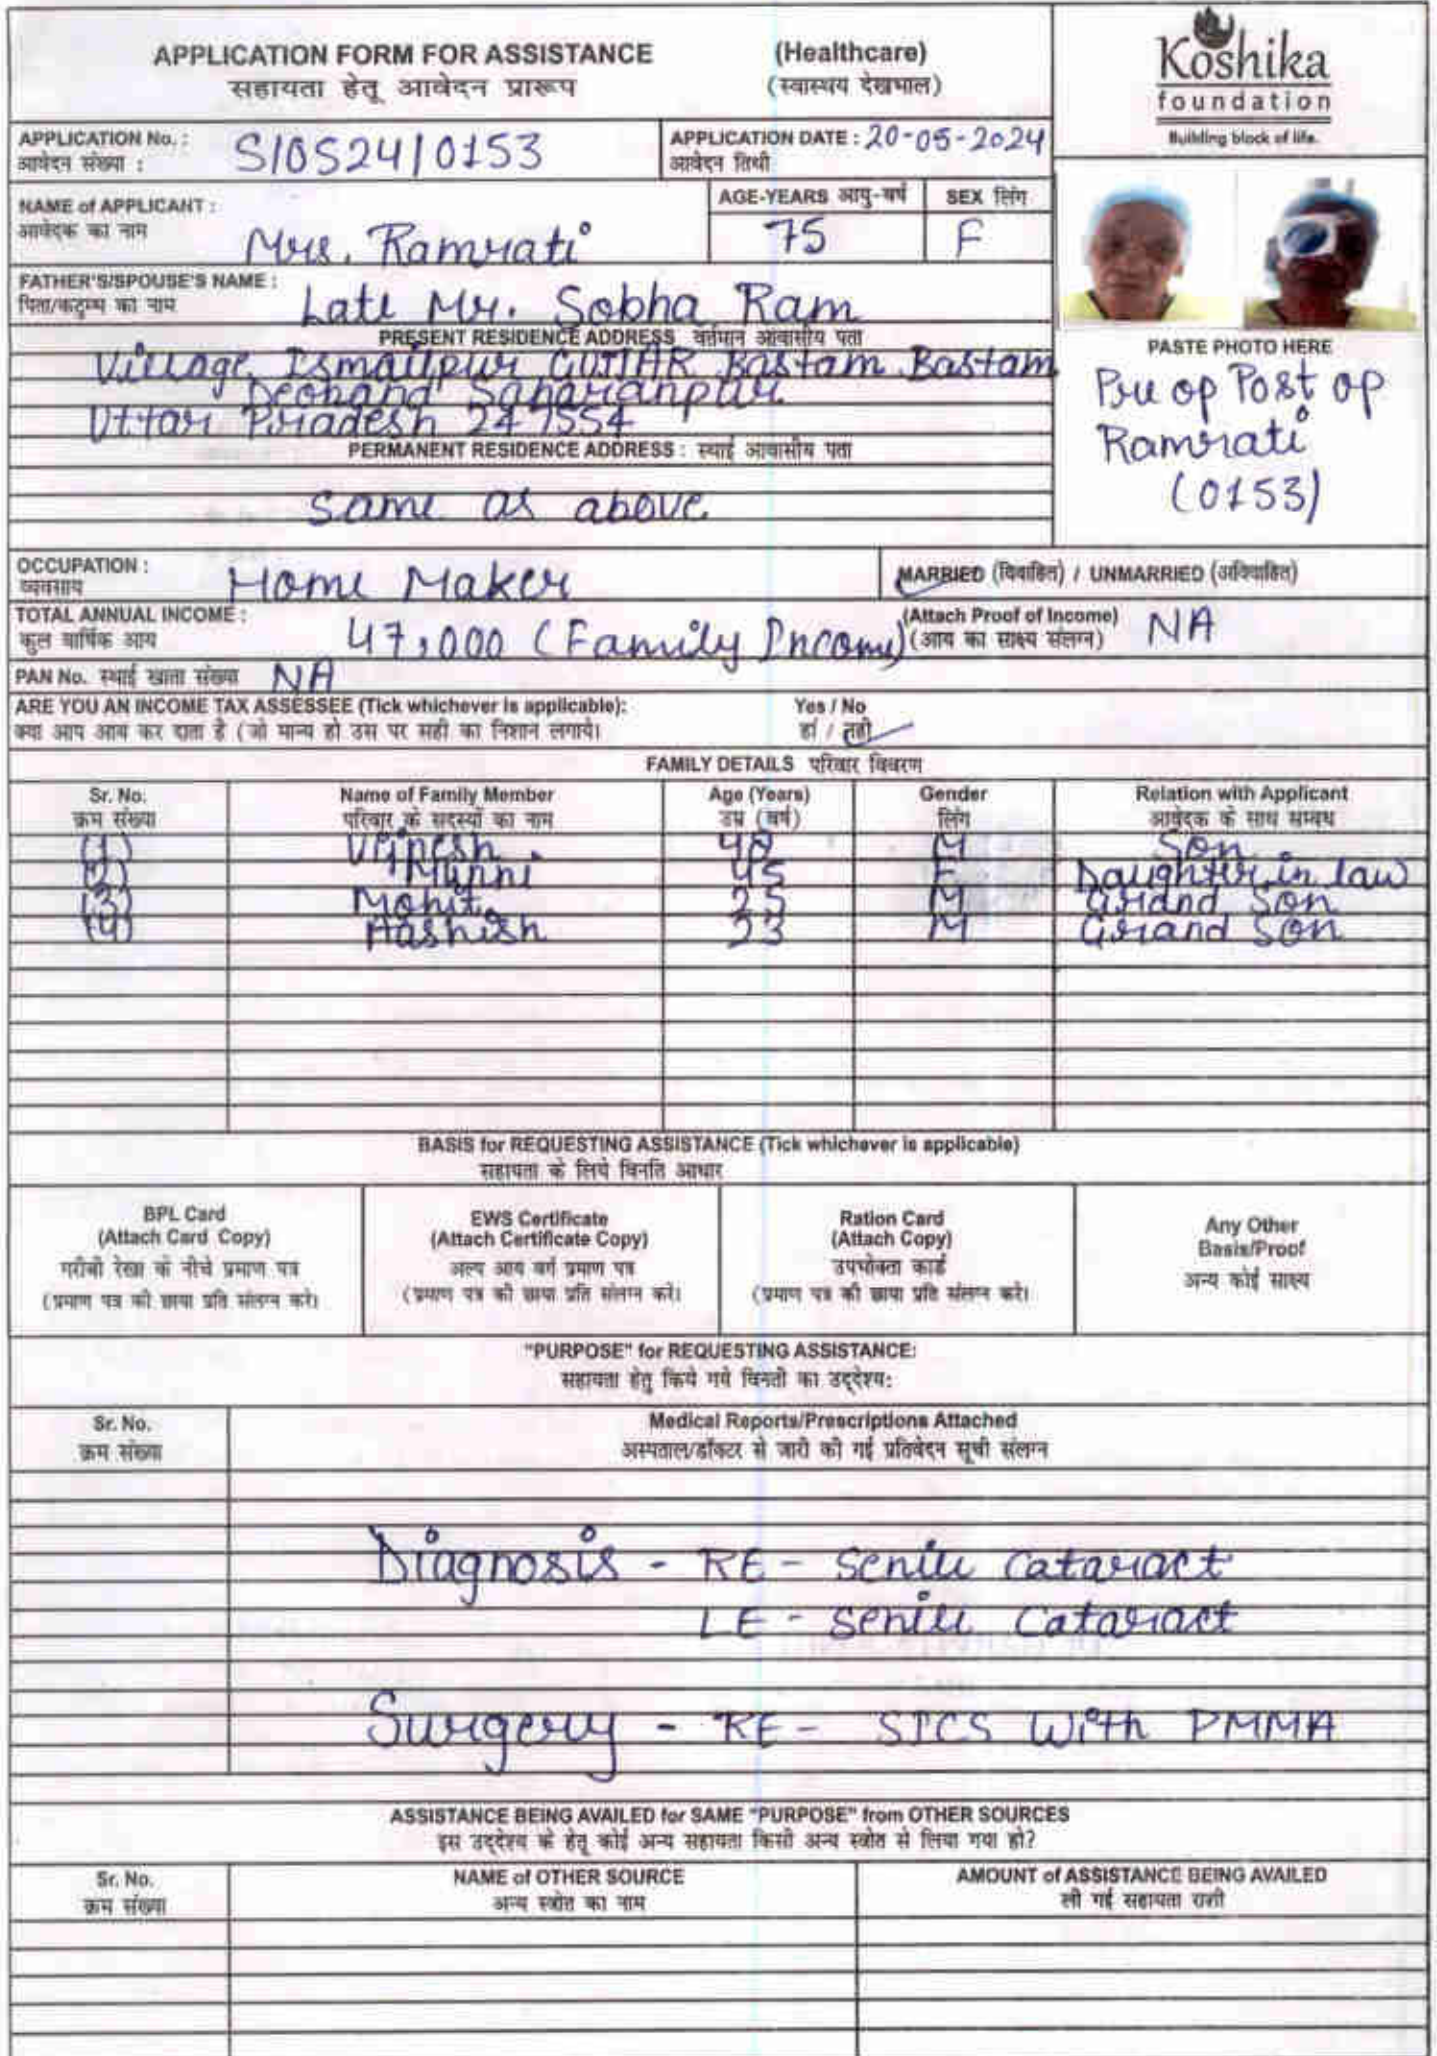 APPLICATION FORM FOR ASSISTANCE (Healthcare)
सहायता हेतू आवेदन प्रारूप (स्वास्थय देखभाल)
Koshika
foundation
Building block of life.
APPLICATION No. : S/0524/0153
आवेदन संख्या :
APPLICATION DATE : 20-05-2024
आवेदन तिथी
NAME of APPLICANT : Mrs. Ramrati
आवेदक का नाम
AGE-YEARS आयु-वर्ष 75
SEX लिंग F
FATHER'S/SPOUSE'S NAME : Late Mr. Sobha Ram
पिता/कटुम्ब का नाम
PRESENT RESIDENCE ADDRESS वर्तमान आवासीय पता
Village Ismailpur GUJJAR Bastam Bastam
Deoband Saharanpur
Uttar Pradesh 247554
PERMANENT RESIDENCE ADDRESS : स्थाई आवासीय पता
Same as above
PASTE PHOTO HERE
Pre op Post op
Ramrati
(0153)
OCCUPATION : Home Maker
व्यवसाय
MARRIED (विवाहित) / UNMARRIED (अविवाहित)
TOTAL ANNUAL INCOME : 47,000 (Family Income)
कुल वार्षिक आय
(Attach Proof of Income) NA
(आय का साक्ष्य संलग्न)
PAN No. स्थाई खाता संख्या NA
ARE YOU AN INCOME TAX ASSESSEE (Tick whichever is applicable): Yes / No
क्या आप आय कर दाता है (जो मान्य हो उस पर सही का निशान लगाये। हां / नही
FAMILY DETAILS परिवार विवरण
Sr. No. Name of Family Member Age (Years) Gender Relation with Applicant
क्रम संख्या परिवार के सदस्यों का नाम उम्र (वर्ष) लिंग आवेदक के साथ सम्बंध
(1) 48 M Son
(2) Munni 45 F Daughter in law
(3) Mohit 25 M Grand Son
(4) Aashish 23 M Grand Son
BASIS for REQUESTING ASSISTANCE (Tick whichever is applicable)
सहायता के लिये विनति आधार
BPL Card
(Attach Card Copy)
गरीबी रेखा के नीचे प्रमाण पत्र
(प्रमाण पत्र की छाया प्रति संलग्न करे।
EWS Certificate
(Attach Certificate Copy)
अल्प आय वर्ग प्रमाण पत्र
(प्रमाण पत्र की छाया प्रति संलग्न करे।
Ration Card
(Attach Copy)
उपभोक्ता कार्ड
(प्रमाण पत्र की छाया प्रति संलग्न करे।
Any Other
Basis/Proof
अन्य कोई साक्ष्य
"PURPOSE" for REQUESTING ASSISTANCE:
सहायता हेतु किये गये विनती का उद्देश्य:
Sr. No. Medical Reports/Prescriptions Attached
क्रम संख्या अस्पताल/डॉक्टर से जारी की गई प्रतिवेदन सूची संलग्न
Diagnosis - RE - Senile Cataract
LE - Senile Cataract
Surgery - RE - SICS With PMMA
ASSISTANCE BEING AVAILED for SAME "PURPOSE" from OTHER SOURCES
इस उद्देश्य के हेतू कोई अन्य सहायता किसी अन्य स्त्रोत से लिया गया हो?
Sr. No. NAME of OTHER SOURCE AMOUNT of ASSISTANCE BEING AVAILED
क्रम संख्या अन्य स्त्रोत का नाम ली गई सहायता राशी